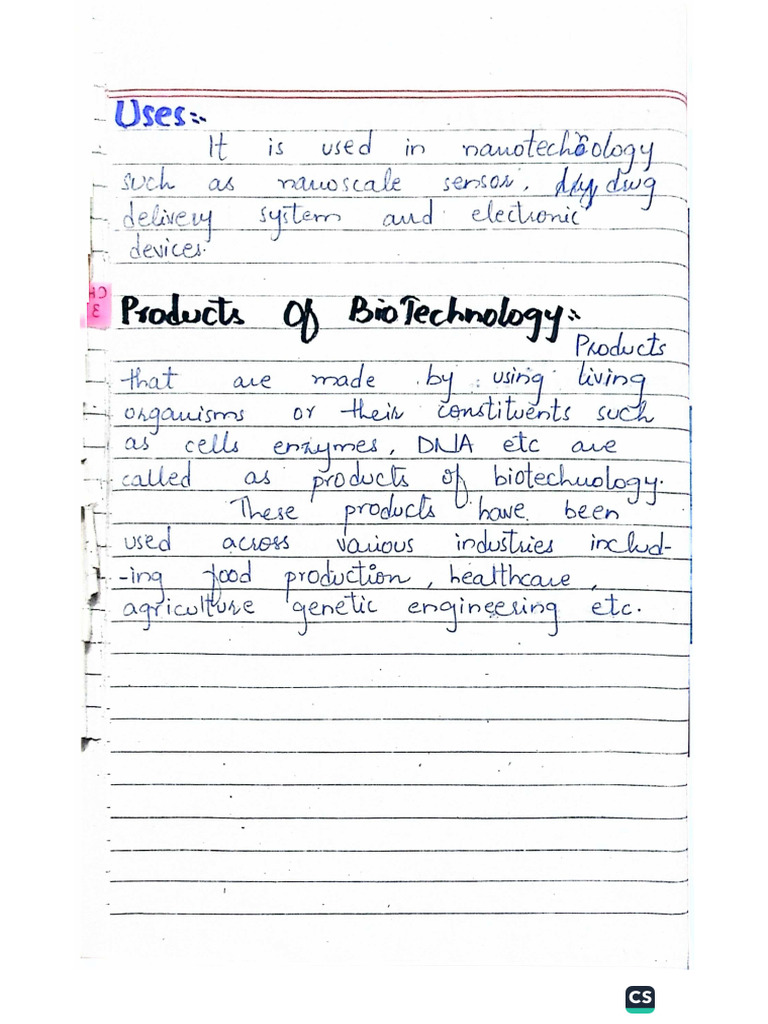 Uses:-
It is used in nanotechnology
such as nanoscale sensor, drug
delivery system and electronic
devices.
CH
3
Products Of BioTechnology:-
Products
that are made by using living
organisms or their constituents such
as cells enzymes, DNA etc are
called as products of biotechnology.
These products have been
used across various industries includ-
-ing food production, healthcare,
agriculture genetic engineering etc.
CS